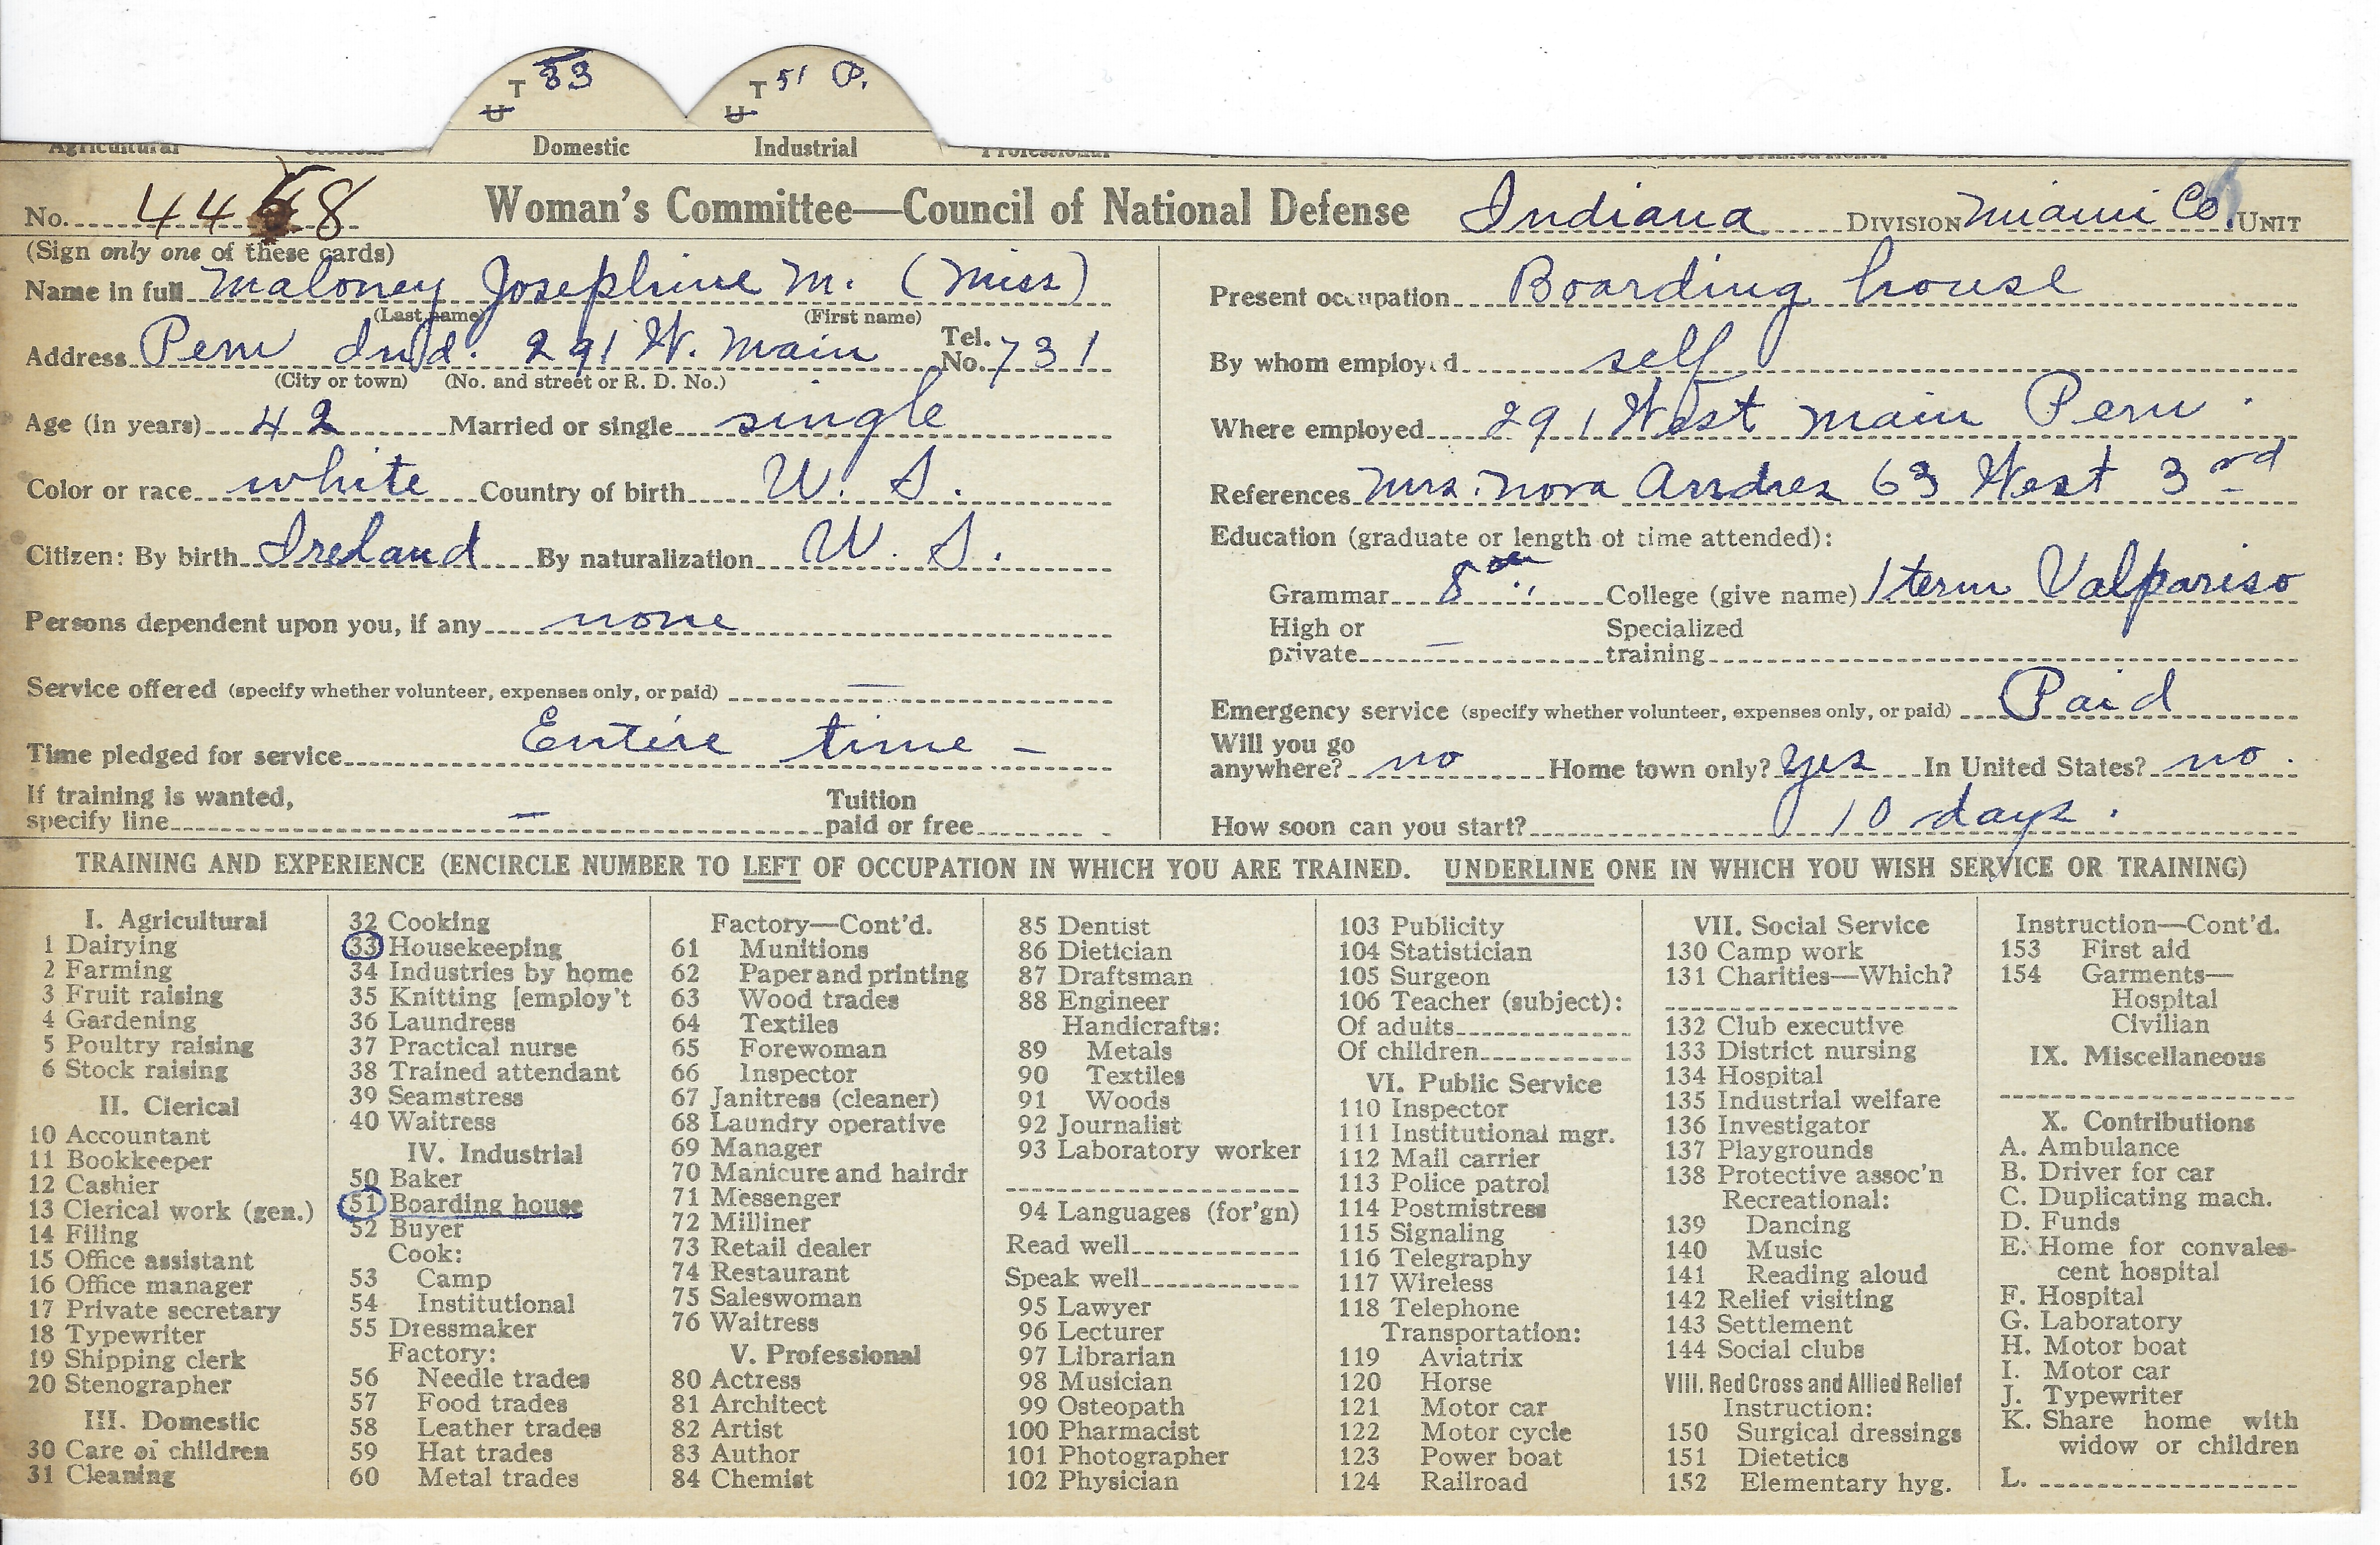 T 33
U
T 51 P.
U
Domestic Industrial
No. 4468 Woman's Committee—Council of National Defense Indiana DIVISION Miami Co. UNIT
(Sign only one of these cards)
Name in full Maloney Josephine M. (Miss)
(Last name) (First name)
Address Peru Ind. 291 W. Main Tel. No. 731
(City or town) (No. and street or R. D. No.)
Age (in years) 42 Married or single single
Color or race white Country of birth U. S.
Citizen: By birth Ireland By naturalization U. S.
Persons dependent upon you, if any none
Service offered (specify whether volunteer, expenses only, or paid) —
Time pledged for service Entire time –
If training is wanted, specify line — Tuition paid or free
Present occupation Boarding house
By whom employed self
Where employed 291 West Main Peru.
References Mrs. Nora 63 West 3rd
Education (graduate or length of time attended):
Grammar 8 College (give name) 1 term Valpariso
High or private — Specialized training
Emergency service (specify whether volunteer, expenses only, or paid) Paid
Will you go anywhere? no Home town only? yes In United States? no.
How soon can you start? 10 days.
TRAINING AND EXPERIENCE (ENCIRCLE NUMBER TO LEFT OF OCCUPATION IN WHICH YOU ARE TRAINED. UNDERLINE ONE IN WHICH YOU WISH SERVICE OR TRAINING)
I. Agricultural
1 Dairying
2 Farming
3 Fruit raising
4 Gardening
5 Poultry raising
6 Stock raising
II. Clerical
10 Accountant
11 Bookkeeper
12 Cashier
13 Clerical work (gen.)
14 Filing
15 Office assistant
16 Office manager
17 Private secretary
18 Typewriter
19 Shipping clerk
20 Stenographer
III. Domestic
30 Care of children
31 Cleaning
32 Cooking
33 Housekeeping
34 Industries by home
35 Knitting [employ't
36 Laundress
37 Practical nurse
38 Trained attendant
39 Seamstress
40 Waitress
IV. Industrial
50 Baker
51 Boarding house
52 Buyer
Cook:
53 Camp
54 Institutional
55 Dressmaker
Factory:
56 Needle trades
57 Food trades
58 Leather trades
59 Hat trades
60 Metal trades
Factory—Cont'd.
61 Munitions
62 Paper and printing
63 Wood trades
64 Textiles
65 Forewoman
66 Inspector
67 Janitress (cleaner)
68 Laundry operative
69 Manager
70 Manicure and hairdr
71 Messenger
72 Milliner
73 Retail dealer
74 Restaurant
75 Saleswoman
76 Waitress
V. Professional
80 Actress
81 Architect
82 Artist
83 Author
84 Chemist
85 Dentist
86 Dietician
87 Draftsman
88 Engineer
Handicrafts:
89 Metals
90 Textiles
91 Woods
92 Journalist
93 Laboratory worker
94 Languages (for'gn)
Read well
Speak well
95 Lawyer
96 Lecturer
97 Librarian
98 Musician
99 Osteopath
100 Pharmacist
101 Photographer
102 Physician
103 Publicity
104 Statistician
105 Surgeon
106 Teacher (subject):
Of adults
Of children
VI. Public Service
110 Inspector
111 Institutional mgr.
112 Mail carrier
113 Police patrol
114 Postmistress
115 Signaling
116 Telegraphy
117 Wireless
118 Telephone
Transportation:
119 Aviatrix
120 Horse
121 Motor car
122 Motor cycle
123 Power boat
124 Railroad
VII. Social Service
130 Camp work
131 Charities—Which?
132 Club executive
133 District nursing
134 Hospital
135 Industrial welfare
136 Investigator
137 Playgrounds
138 Protective assoc'n
Recreational:
139 Dancing
140 Music
141 Reading aloud
142 Relief visiting
143 Settlement
144 Social clubs
VIII. Red Cross and Allied Relief
Instruction:
150 Surgical dressings
151 Dietetics
152 Elementary hyg.
Instruction—Cont'd.
153 First aid
154 Garments—
Hospital
Civilian
IX. Miscellaneous
X. Contributions
A. Ambulance
B. Driver for car
C. Duplicating mach.
D. Funds
E. Home for convales-
cent hospital
F. Hospital
G. Laboratory
H. Motor boat
I. Motor car
J. Typewriter
K. Share home with
widow or children
L.